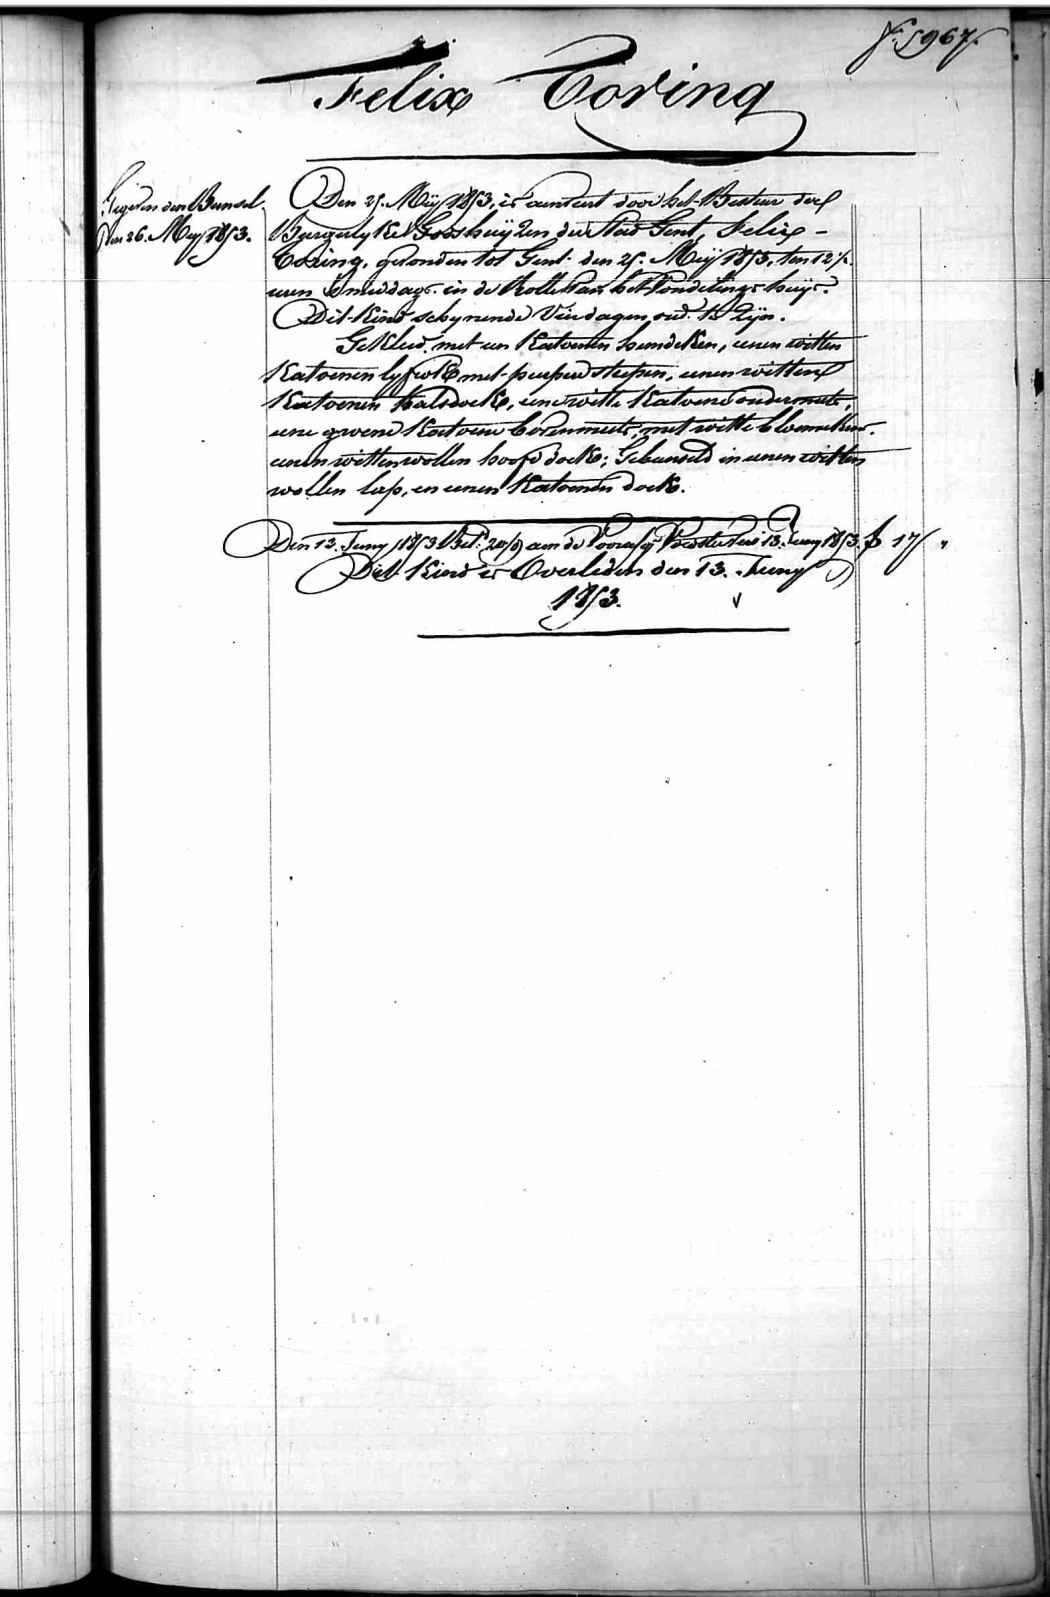 5967.
Felix Coring
Gegeven den Bunsel
Den 26. Mey 1853.
Den 25. Meÿ 1853, is aenveert door het Bestuer der
Burgerlyke Godshuÿzen der Stad Gent, Felix -
Coring, gevonden tot Gent den 25. Meÿ 1853, ten 12 ½
uren 's middags in de Rolle van het Vondelings huÿs.
Dit Kind schynende Vier dagen oud te Zÿn.
Gekleed met een Katoenen hemdeken, eenen witten
Katoenen lyfrok met purpere streepen, eenen witten
Katoenen halsdoek, eene witte Katoene ondermuts,
eene groene Katoene bovenmuts, met witte bloemekens,
eenen witten wollen hoofddoek; Gebunseld in eenen witten
wollen lap, en eenen Katoenen doek.
Den 13. Juny 1853 Bet. aen de Voorz. Voedster 13. Juny 1853. f. 17 "
Dit Kind is Overleden den 13. Juny
1853.